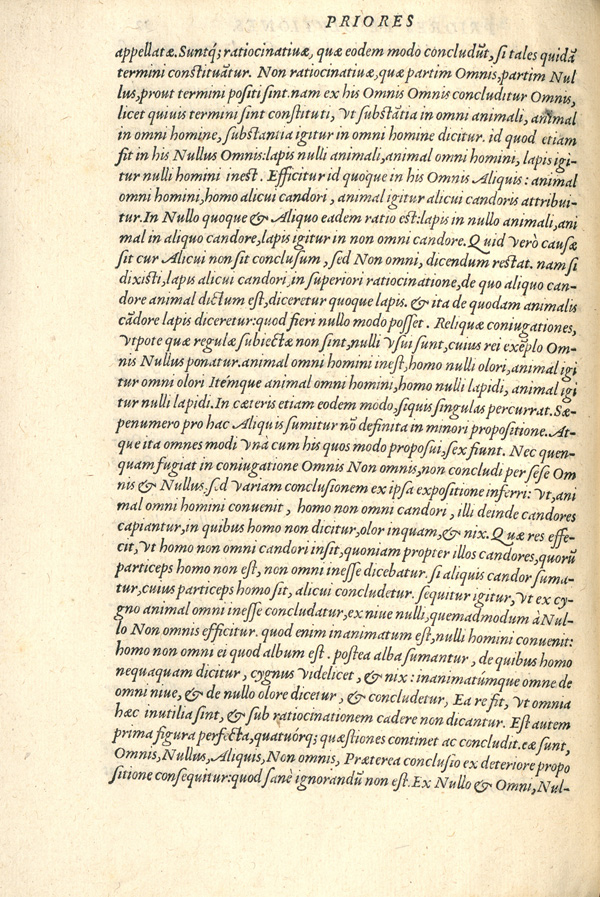 PRIORES
appellatæ. Suntq́; ratiocinatiuæ, quæ eodem modo concludūt, si tales quidā
termini constituātur. Non ratiocinatiuæ, quæ partim Omnis, partim Nul
lus, prout termini positi sint. nam ex his Omnis Omnis concluditur Omnis,
licet quiuis termini sint constituti, vt substātia in omni animali, animal
in omni homine, substantia igitur in omni homine dicitur. id quod etiam
fit in his Nullus Omnis: lapis nulli animali, animal omni homini, lapis igi-
tur nulli homini inest. Efficitur id quoque in his Omnis Aliquis: animal
omni homini, homo alicui candori, animal igitur alicui candoris attribui-
tur. In Nullo quoque & Aliquo eadem ratio est: lapis in nullo animali, ani
mal in aliquo candore, lapis igitur in non omni candore. Quid verò causæ
sit cur Alicui non sit conclusum, sed Non omni, dicendum restat. nam si
dixisti, lapis alicui candori in superiori ratiocinatione, de quo aliquo can-
dore animal dictum est, diceretur quoque lapis. & ita de quodam animalis
cādore lapis diceretur: quod fieri nullo modo posset. Reliquæ coniugationes,
vtpote quæ regulæ subiectæ non sint, nulli vsui sunt, cuius rei exēplo Om-
nis Nullus ponatur. animal omni homini inest, homo nulli olori, animal igi
tur omni olori Itémque animal omni homini, homo nulli lapidi, animal igi
tur nulli lapidi. In cæteris etiam eodem modo, siquis singulas percurrat. Sæ-
penumero pro hac Aliquis sumitur nō definita in minori propositione. At-
que ita omnes modi vnà cum his quos modo proposui, sex fiunt. Nec quen-
quam fugiat in coniugatione Omnis Non omnis, non concludi per sese Om
nis & Nullus. s.d variam conclusionem ex ipsa expositione inferri: vt, ani
mal omni homini conuenit, homo non omni candori, illi deinde candores
capiantur, in quibus homo non dicitur, olor inquam, & nix. Quæ res effe-
cit, vt homo non omni candori insit, quoniam propter illos candores, quorū
particeps homo non est, non omni inesse dicebatur. si aliquis candor suma-
tur, cuius particeps homo sit, alicui concludetur. sequitur igitur, vt ex cy-
gno animal omni inesse concludatur, ex niue nulli, quemadmodum à Nul-
lo Non omnis efficitur. quod enim inanimatum est, nulli homini conuenit:
homo non omni ei quod album est. postea alba sumantur, de quibus homo
nequaquam dicitur, cygnus videlicet, & nix: inanimatúmque omne de
omni niue, & de nullo olore dicetur, & concludetur, Ea re fit, vt omnia
hæc inutilia sint, & sub ratiocinationem cadere non dicantur. Est autem
prima figura perfecta, quatuórq; quæstiones continet ac concludit. eæ sunt,
Omnis, Nullus, Aliquis, Non omnis, Præterea conclusio ex deteriore propo
sitione consequitur: quod sanè ignorandū non est. Ex Nullo & Omni, Nul-